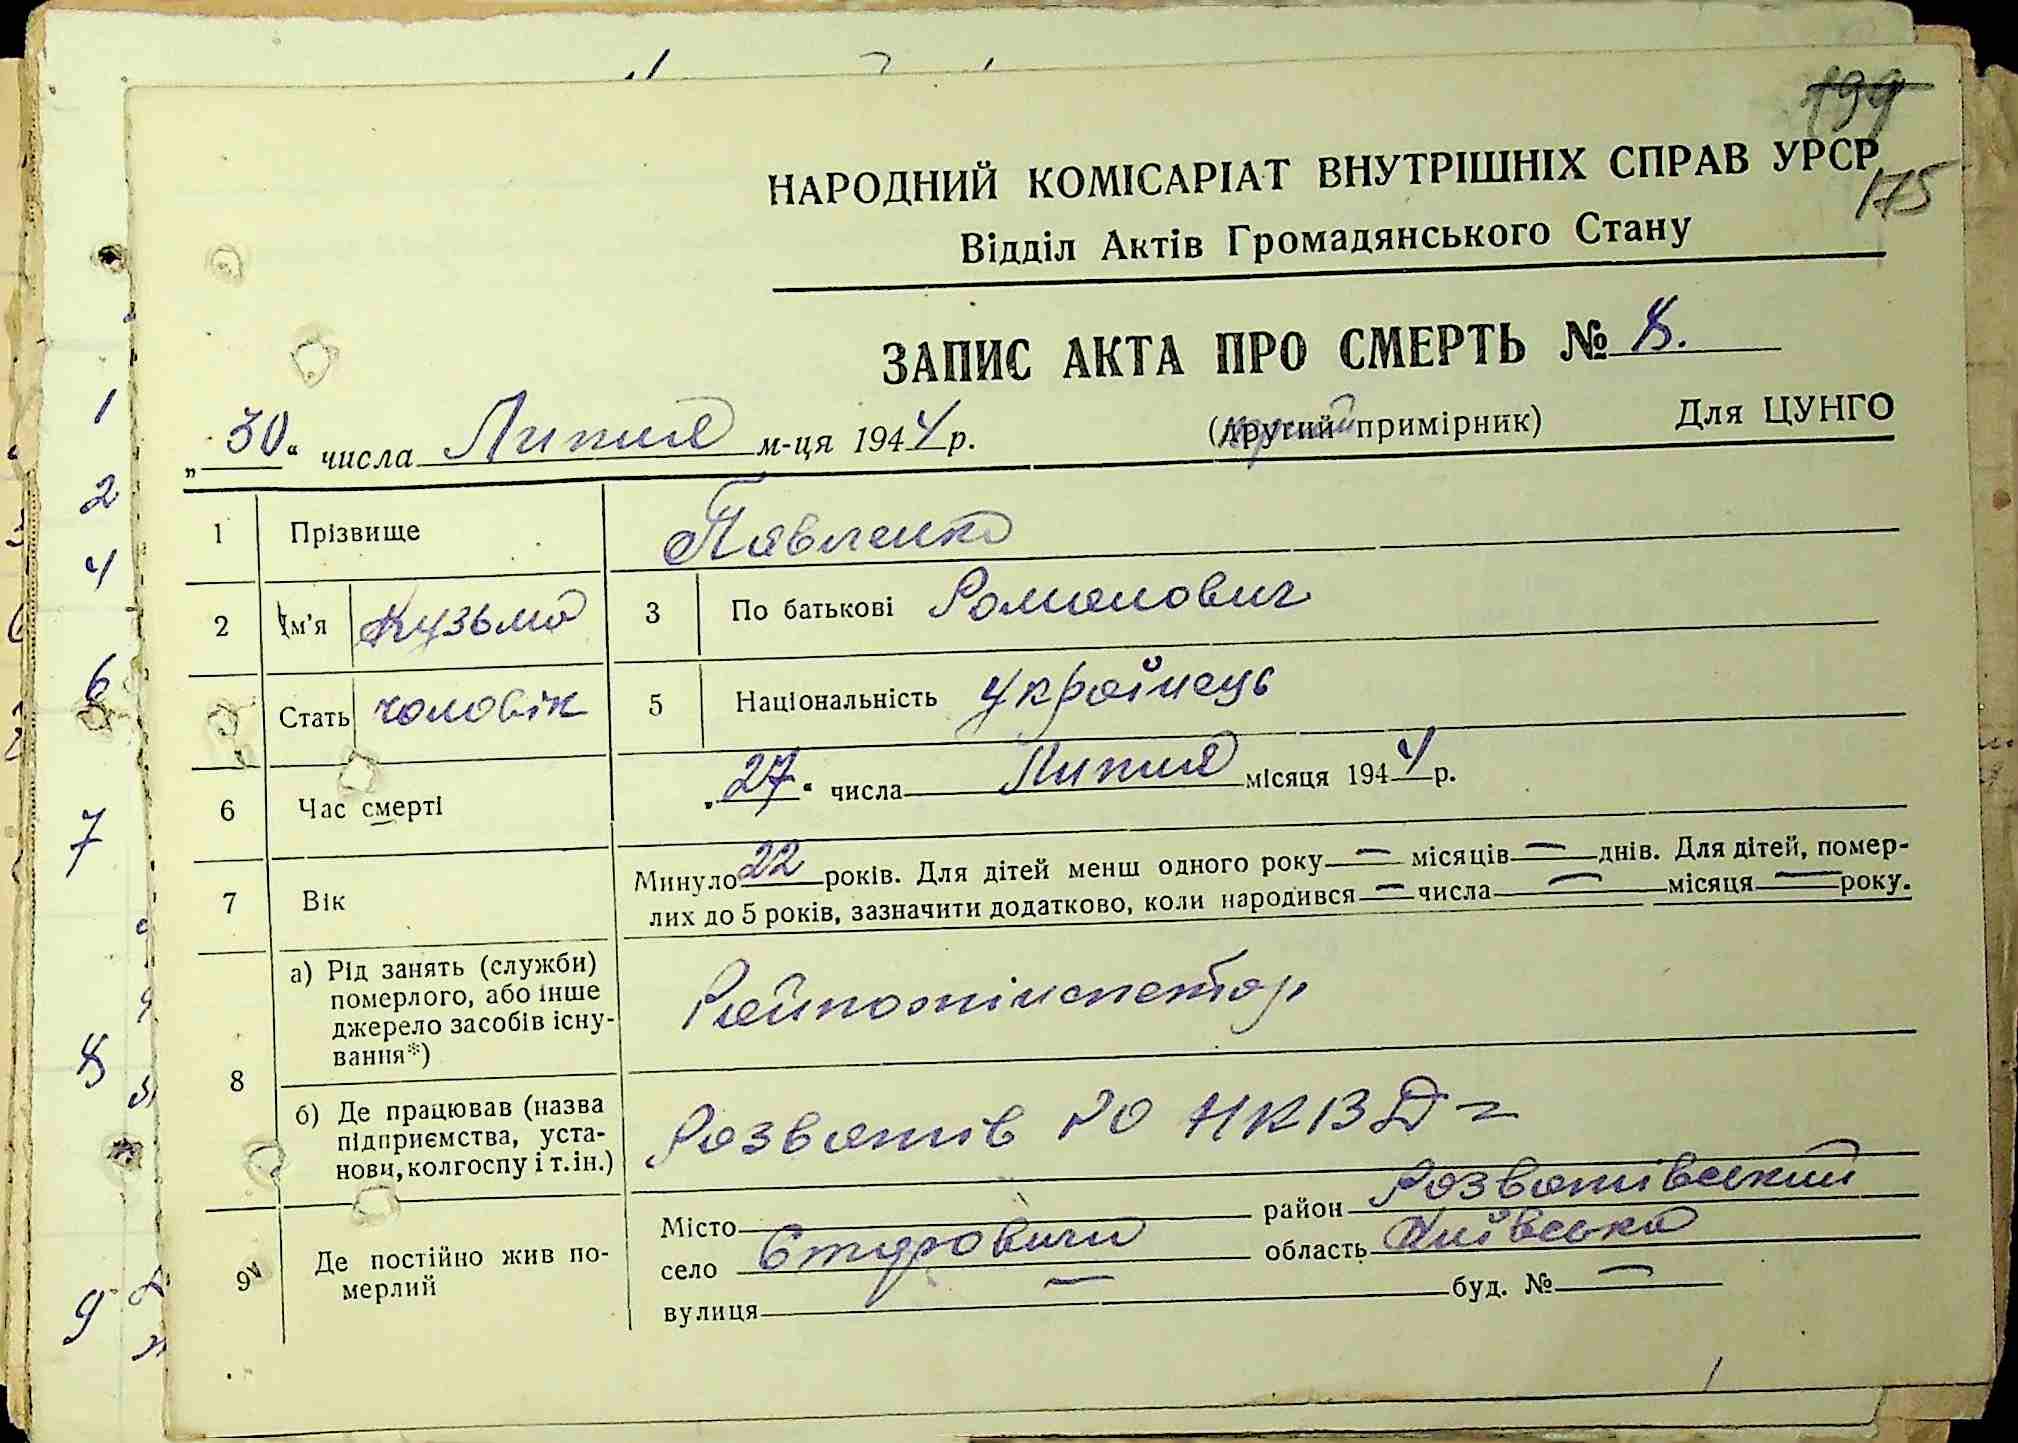 199
НАРОДНИЙ КОМІСАРІАТ ВНУТРІШНІХ СПРАВ УРСР
175
Відділ Актів Громадянського Стану
ЗАПИС АКТА ПРО СМЕРТЬ № 8.
„30“ числа Липня м-ця 1944 р. (другий примірник) Для ЦУНГО
1 Прізвище Павленко
2 Ім'я Кузьма 3 По батькові Романович
Стать чоловік 5 Національність українець
6 Час смерті „27“ числа Липня місяця 1944 р.
7 Вік Минуло 22 років. Для дітей менш одного року — місяців — днів. Для дітей, помер-
лих до 5 років, зазначити додатково, коли народився — числа — місяця — року.
8 а) Рід занять (служби)
померлого, або інше
джерело засобів існу-
вання*)
Райпожінспектор
б) Де працював (назва
підприємства, уста-
нови, колгоспу і т. ін.)
Розважів РО НКВД
9 Де постійно жив по-
мерлий
Місто район Розважівський
село область Київська
вулиця — буд. № —
1
2
4
6
7
8
9